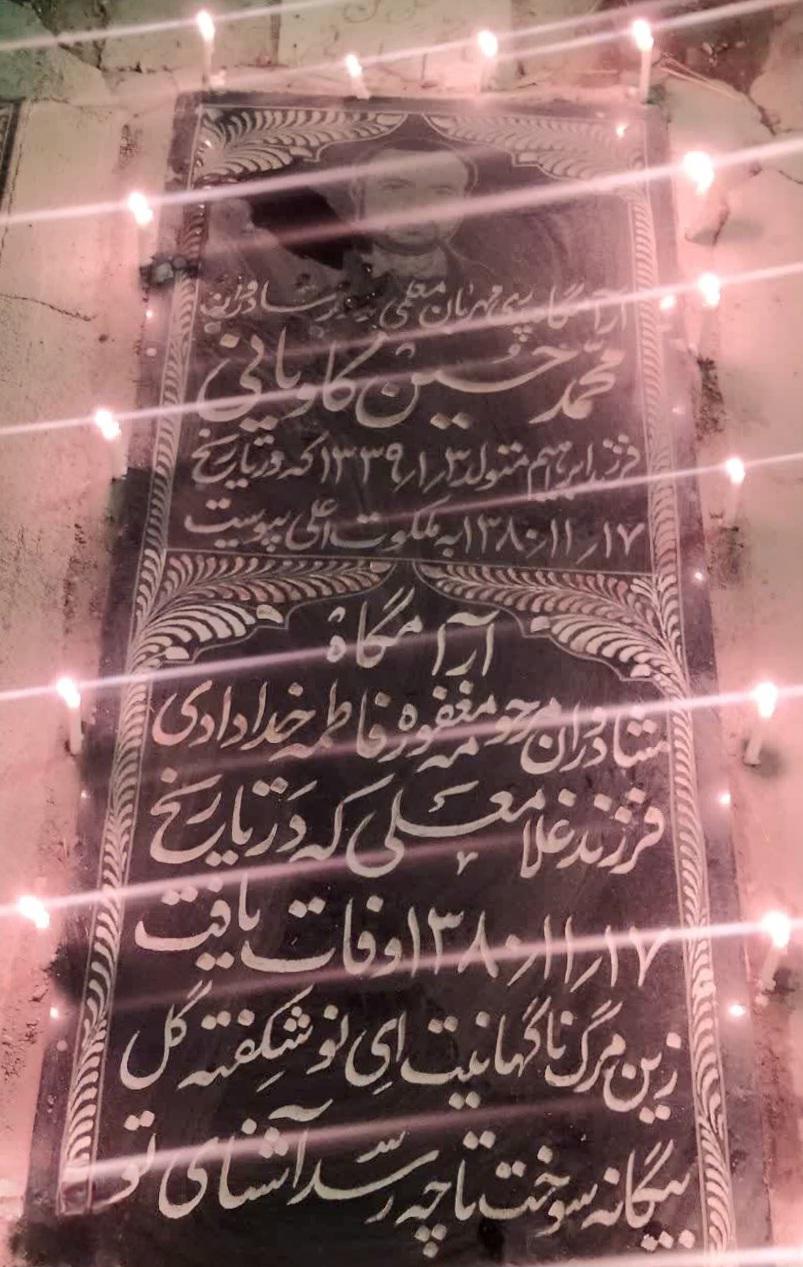 آرامگاه پدری مهربان معلمی شادروان
محمد حسین کاویانی
فرزند ابراهیم متولد ۱۳۳۹٫۱٫۳ که در تاریخ
۱۳۸۰٫۱۱٫۱۷ به ملکوت اعلی پیوست
آرامگاه
شادروان مرحومه مغفوره فاطمه خدادادی
فرزند غلامعلی که در تاریخ
۱۳۸۰٫۱۱٫۱۷ وفات یافت
زین مرگ ناگهانیت ای نوشکفته گل
بیگانه سوخت تا چه رسد آشنای تو